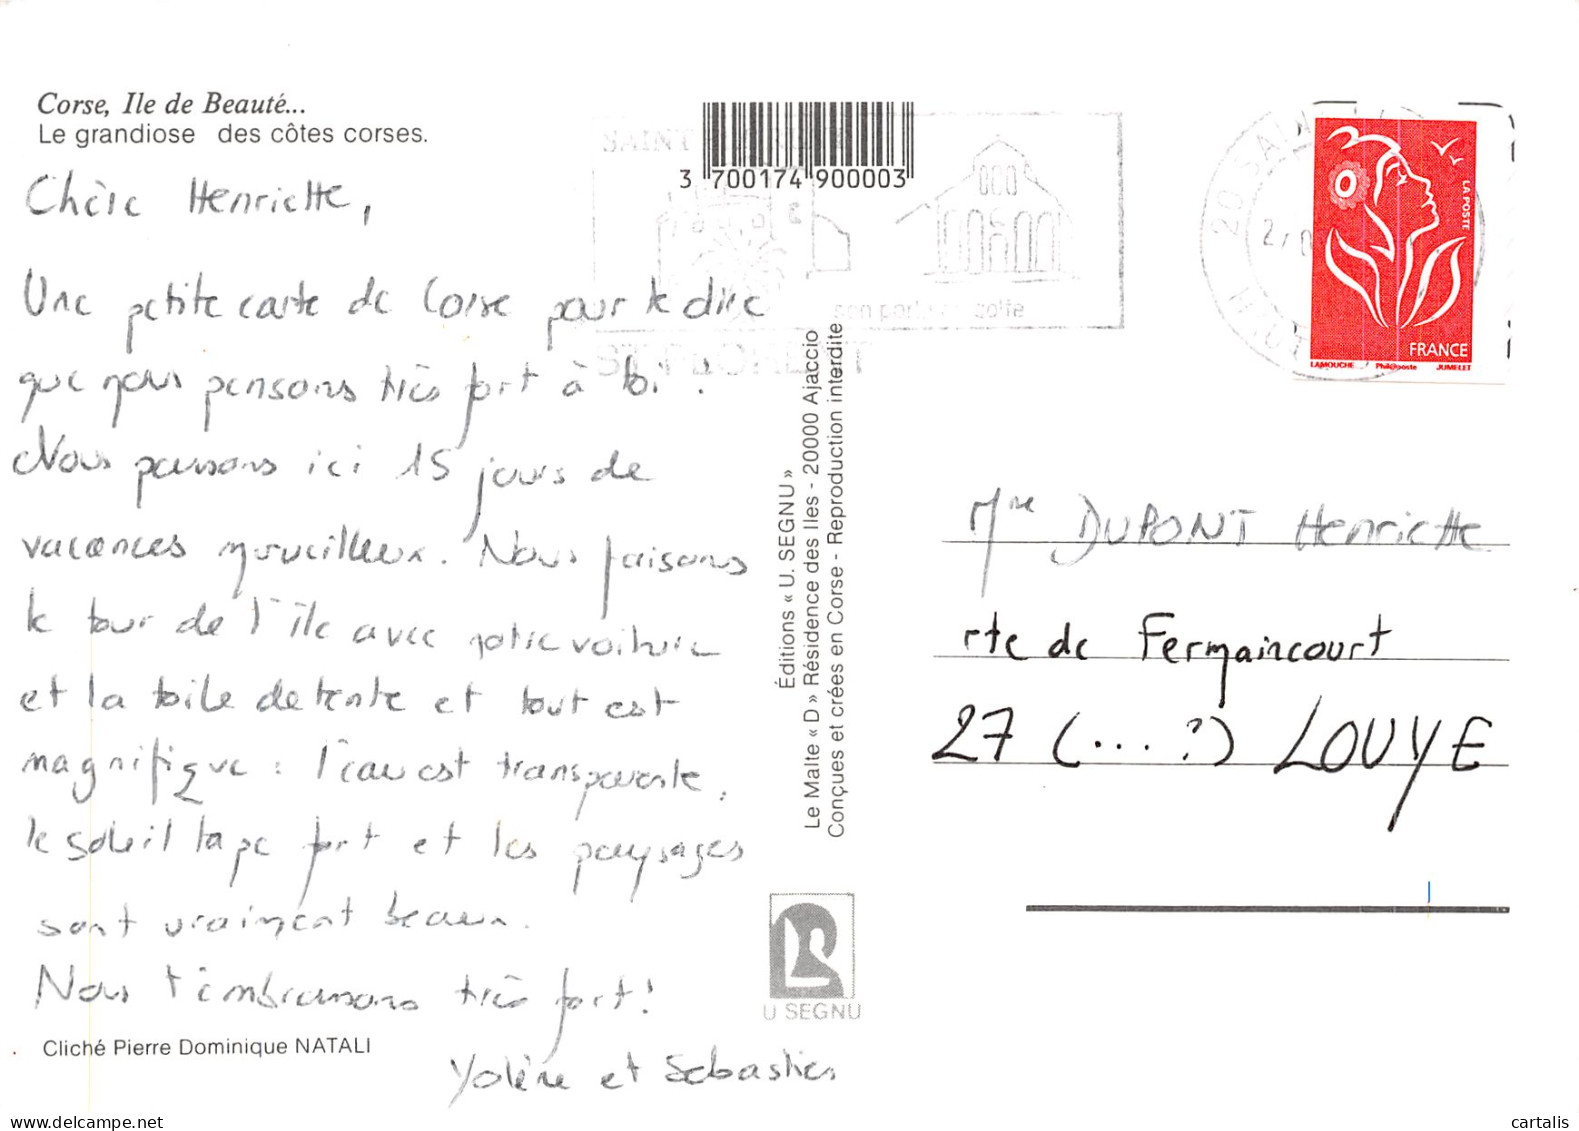 Corse, Ile de Beauté...
Le grandiose des côtes corses.
Chère Henriette,
Une petite carte de Corse pour te dire
que nous pensons très fort à toi !
Nous passons ici 15 jours de
vacances merveilleux. Nous faisons
le tour de l'île avec notre voiture
et la toile de tente et tout est
magnifique : l'eau est transparente,
le soleil tape fort et les paysages
sont vraiment beaux.
Nous t'embrassons très fort !
Yolène et Sébastien
Cliché Pierre Dominique NATALI
3 700174 900003
SAINT
ST FLORENT
son port golfe
Éditions « U. SEGNU »
Le Malte « D » Résidence des Iles - 20000 Ajaccio
Conçues et crées en Corse - Reproduction interdite
U SEGNU
20 SAIN
LA POSTE
FRANCE
LAMOUCHE Phil@poste JUMELET
Mme DUPONT Henriette
rte de Fermaincourt
27 (...?) LOUYE
cartalis
delcampe.net